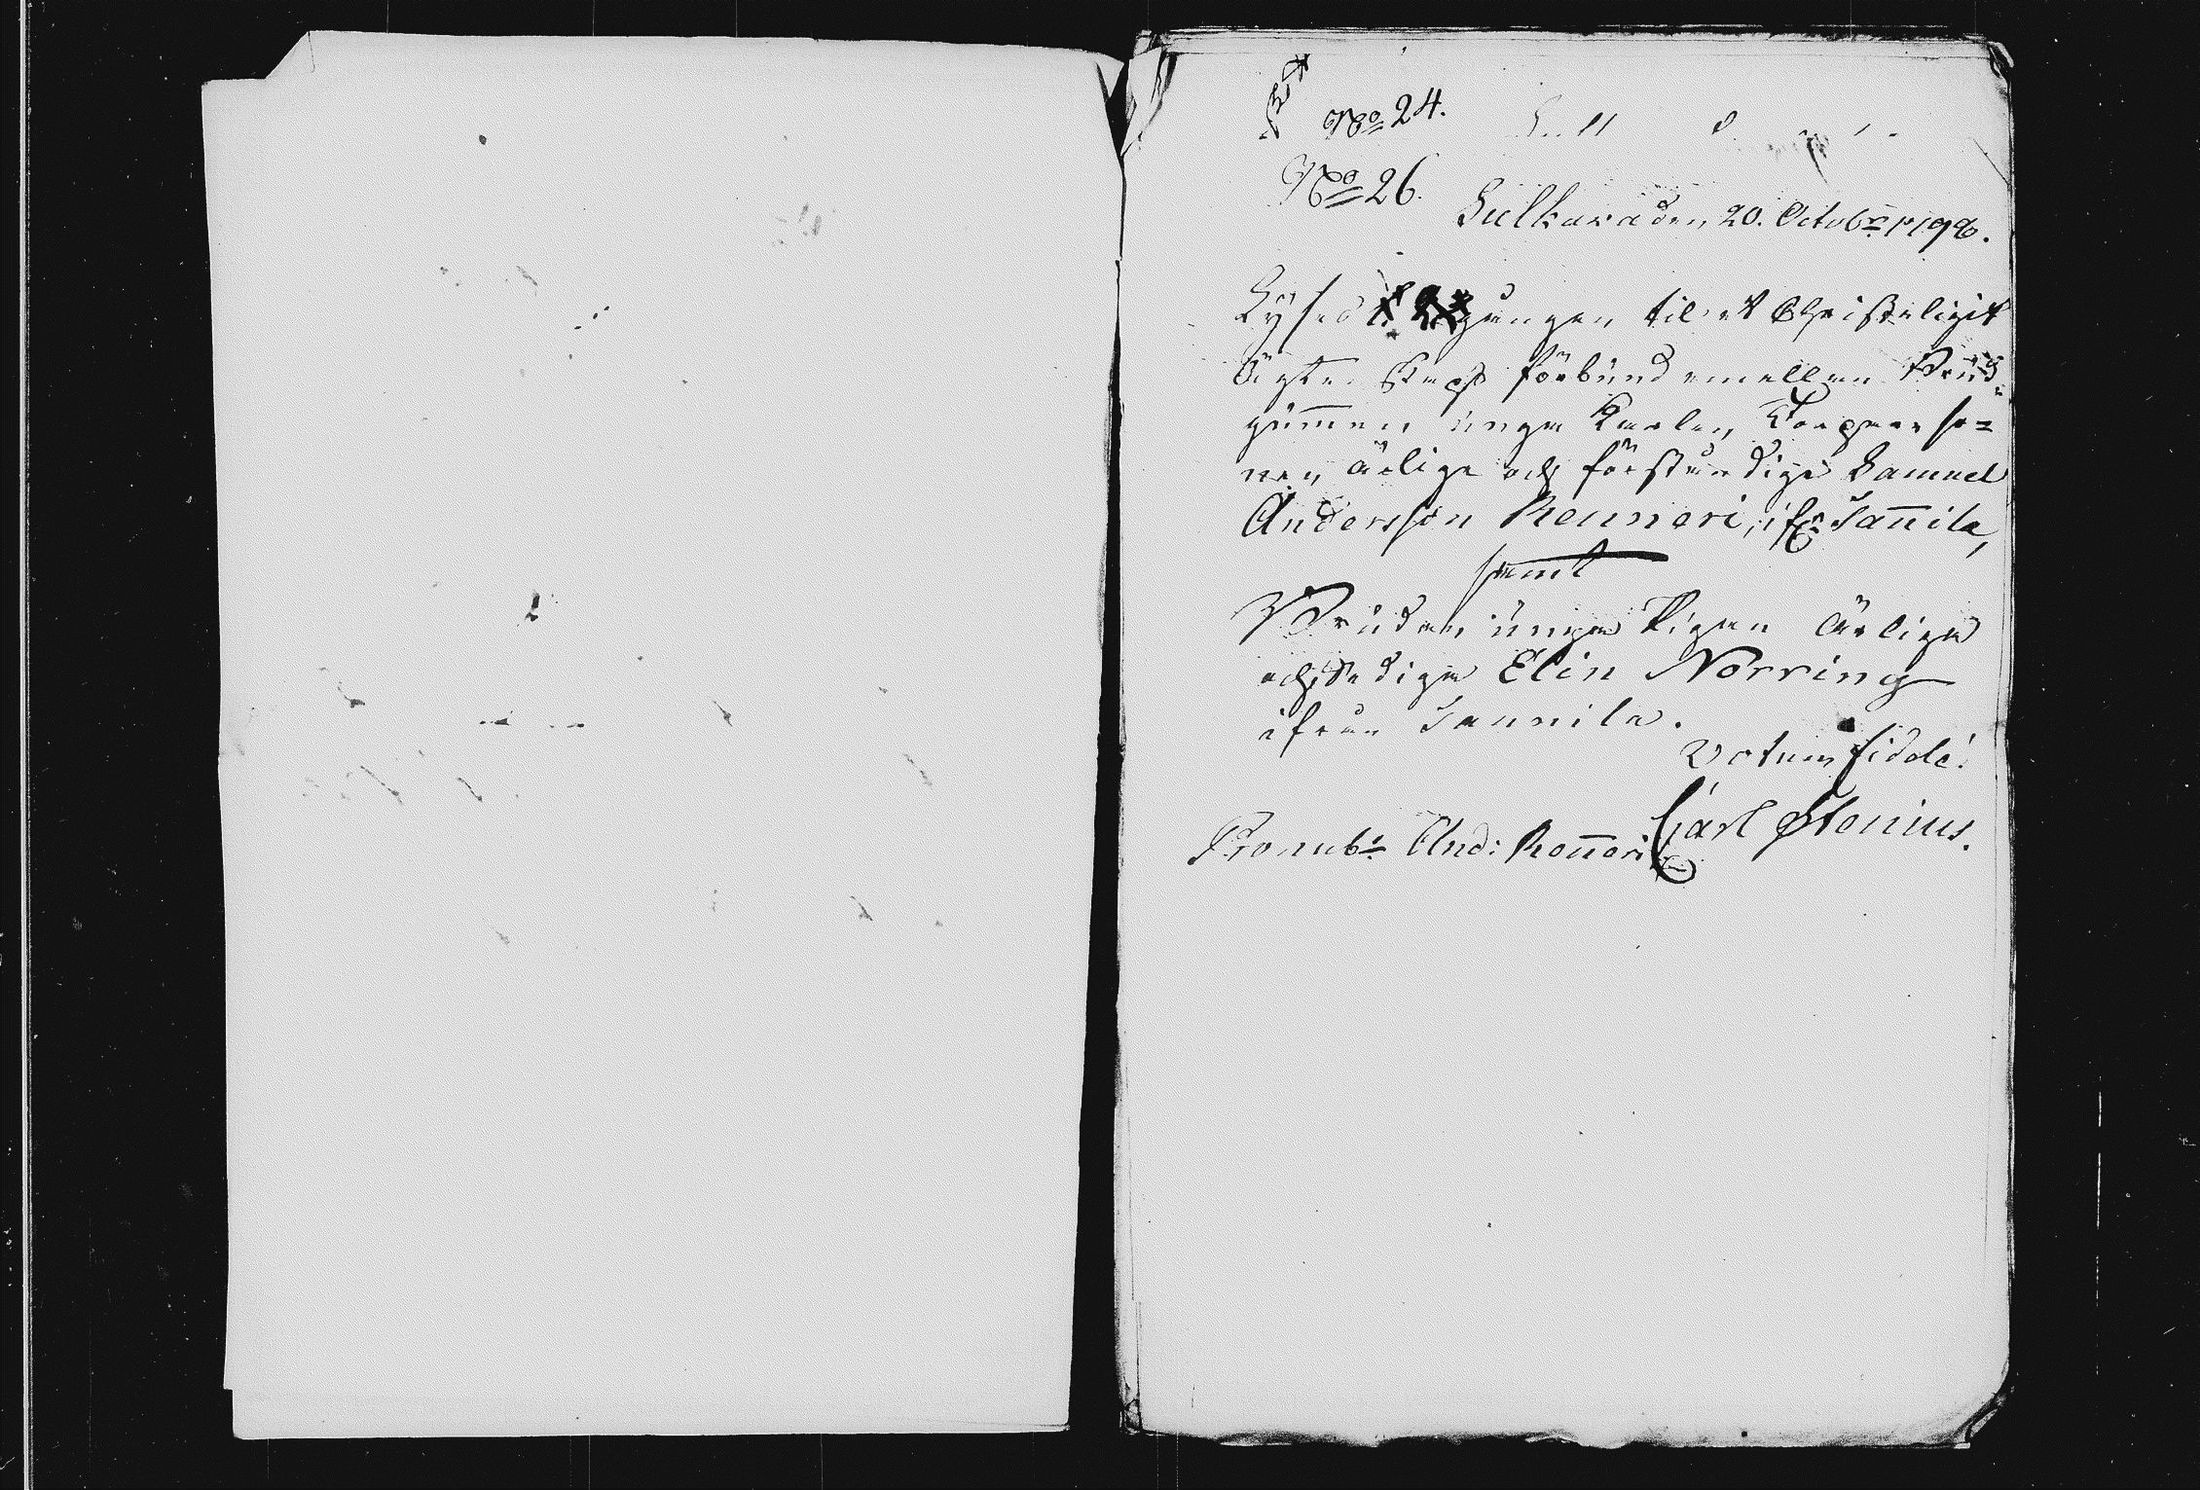 No 24.
No 26.
Sulkava den 20. Octobr 1796.
Lyses gången til et Christeligit
Ägtenskaps förbund emellan Brüd-
gummen unge Karlen, Torparesо=
nen, ärlige och förståndige Samuel
Andersson Renneri, ifr Jannila,
samt
Bruden unga Pigan Ärliga
och Sediga Elin Norring
ifrån Jannila.
Votum fidele!
Carl Stenius.
Pronubs And: Renneri